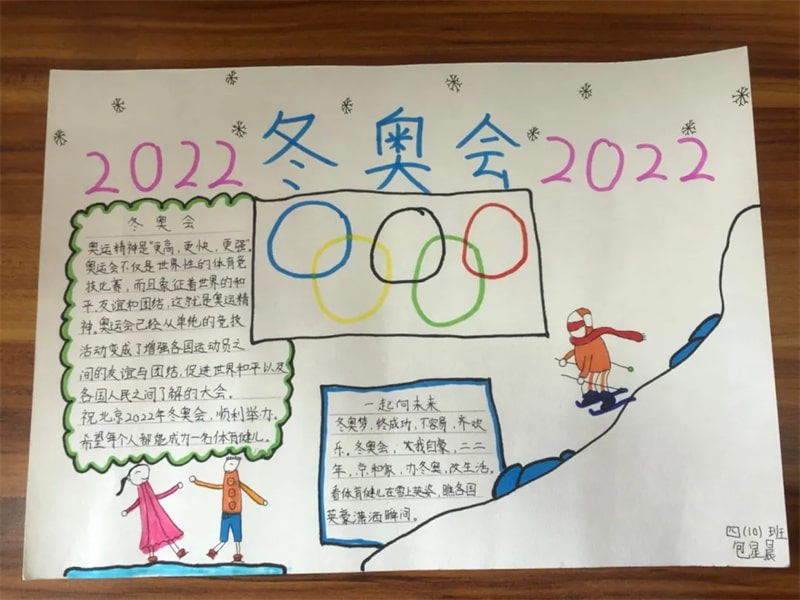 2022 冬奥会 2022
冬奥会
奥运精神是“更高，更快，更强”。
奥运会不仅是世界性的体育竞
技比赛，而且象征着世界的和
平，友谊和团结，这就是奥运精
神。奥运会已经从单纯的竞技
活动变成了增强各国运动员之
间的友谊与团结，促进世界和平以及
各国人民之间了解的大会。
祝北京2022年冬奥会，顺利举办。
希望每个人都能成为一名体育健儿。
一起向未来
冬奥梦，终成功，不容易，齐欢
乐。冬奥会，笑我自豪，二二
年，京和家，办冬奥，改生活。
看体育健儿在雪上英姿，瞧各国
英豪潇洒瞬间。
四(10)班
包星晨